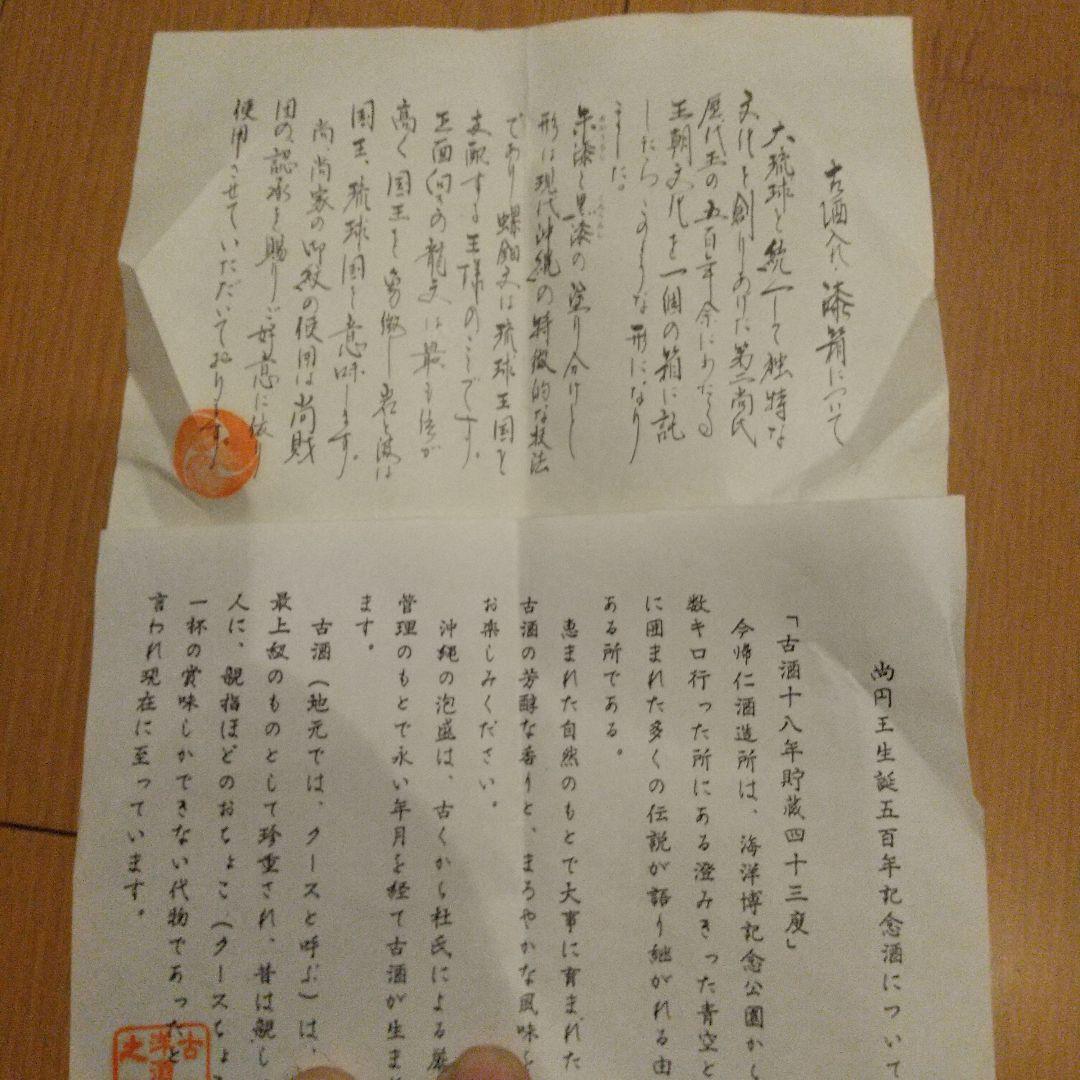 古酒入れ・漆箱について
大琉球を統一して独特な
文化を創りあげた第二尚氏
歴代王の五百年余にわたる
王朝文化を一個の箱に託
したらこのような形になり
ました。
朱漆と黒漆の塗り分けし
形は現代沖縄の特徴的な技法
であり螺鈿文は琉球王国を
支配する王様のことです。
正面向きの龍文は最も位が
高く国王を象徴し岩と波は
国王、琉球国を意味します。
尚、尚家の御紋の使用は尚財
団の認承を賜りご好意に依り
使用させていただいております。
尚円王生誕五百年記念酒について
「古酒十八年貯蔵四十三度」
今帰仁酒造所は、海洋博記念公園から
数キロ行った所にある澄みきった青空と
に囲まれた多くの伝説が語り継がれる由
ある所である。
恵まれた自然のもとで大事に育まれた
古酒の芳醇な香りと、まろやかな風味を
お楽しみください。
沖縄の泡盛は、古くから杜氏による厳
管理のもとで永い年月を経て古酒が生ま
ます。
古酒（地元では、クースと呼ぶ）は、
最上級のものとして珍重され、昔は親し
人に、親指ほどのおちょこ（クースちょこ
一杯の賞味しかできない代物であったと
言われ現在に至っています。
古
洋酒
之